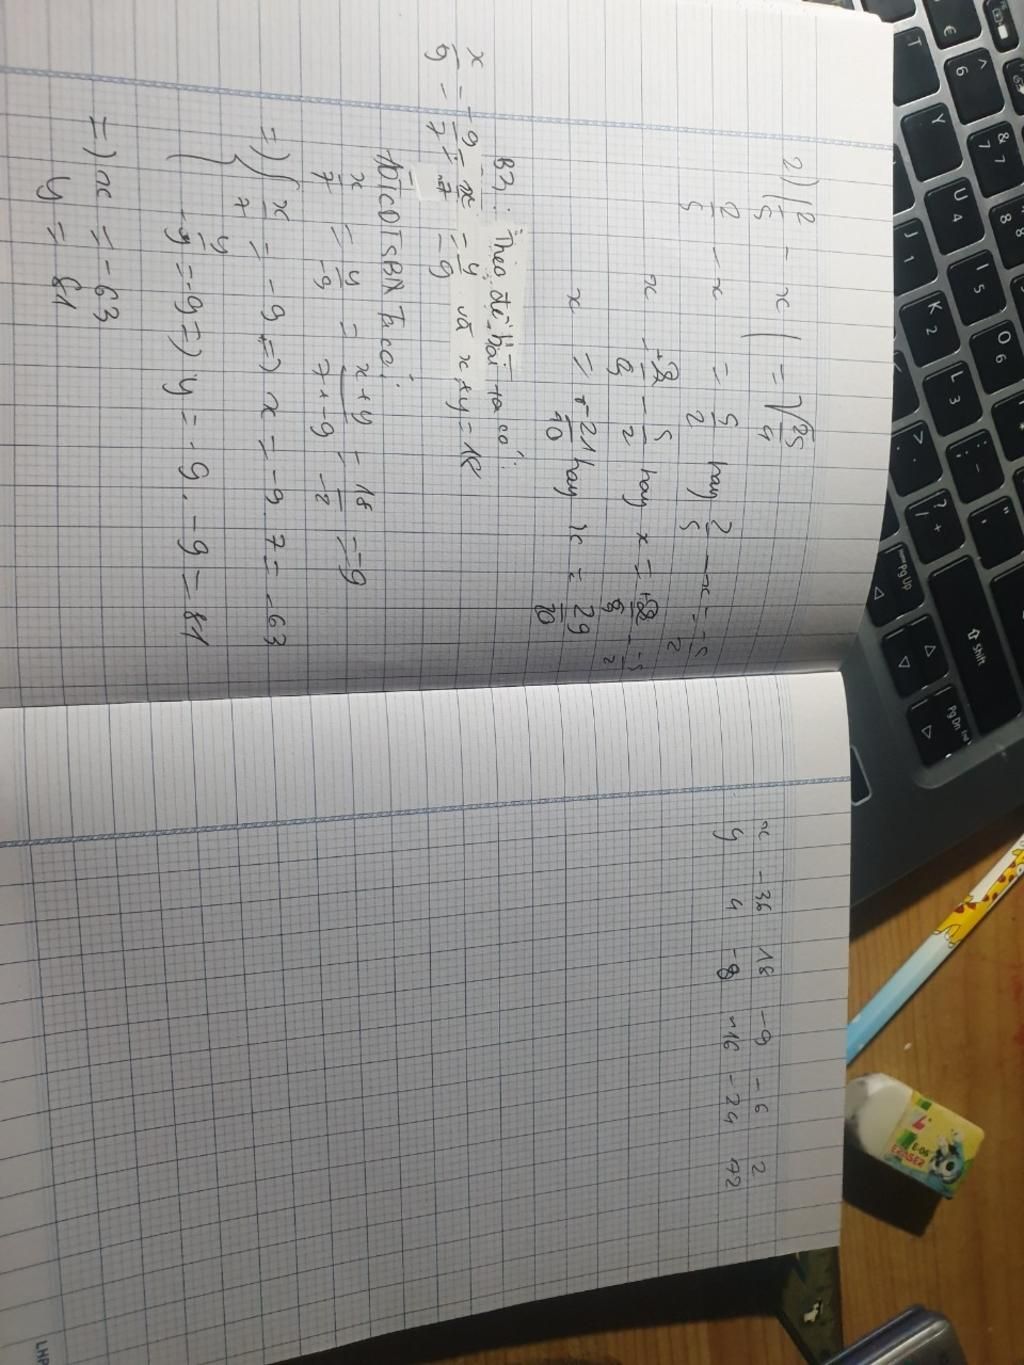 2) | 2/5 - x | = √25/4
2/5 - x = 5/2 hay 2/5 - x = -5/2
x = 2/5 - 5/2 hay x = 2/5 - -5/2
x = -21/10 hay x = 29/10
B3: Theo đề bài ta có:
x/y = -9 = x/7 = y/-9 và x+y = 18
ADTCDTSBN Ta có:
x/7 = y/-9 = x+y/7+-9 = 18/-2 = -9
=) { x/7 = -9 =) x = -9 . 7 = -63
y/-9 = -9 =) y = -9 . -9 = 81
=) x = -63
y = 81
x -36 18 -9 -6 2
y 4 -8 -16 -24 72
LHP
T
Y
U 4
I 5
O 6
J 1
K 2
L 3
€
^ 6
& 7 7
8
9
? / +
⇧ Shift
Pg Up
Pg Dn
E-06
ERASER